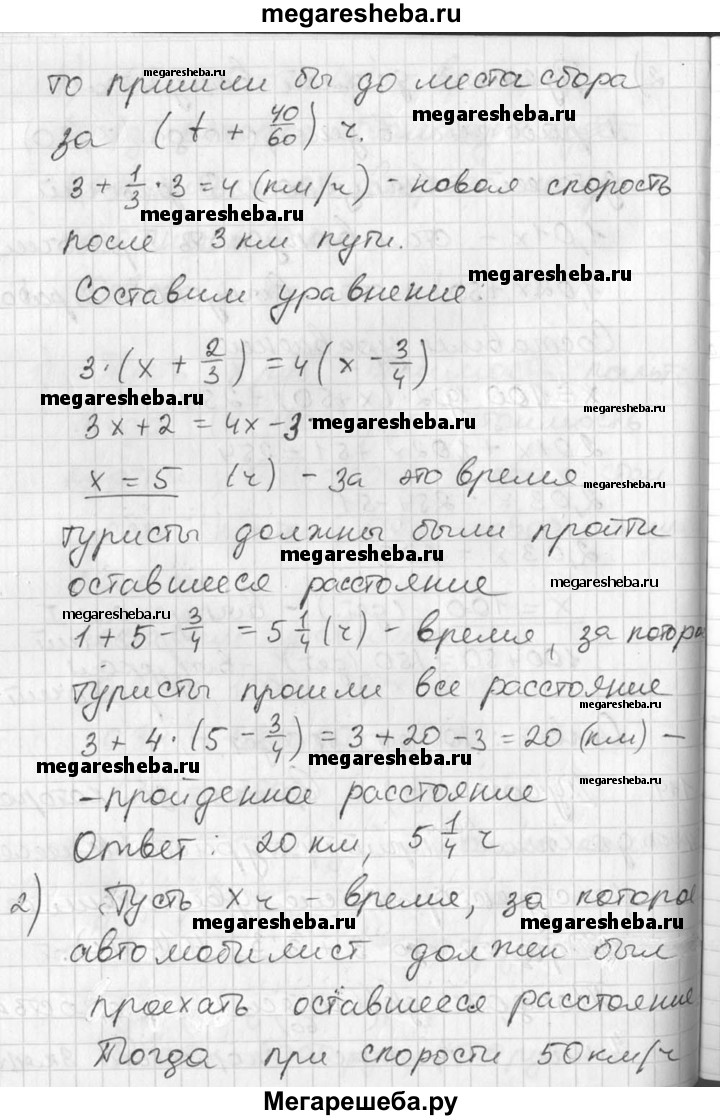 megaresheba.ru
то пришли бы до места сбора
megaresheba.ru
за (t + 40/60) ч.
megaresheba.ru
3 + 1/3 · 3 = 4 (км/ч) - новая скорость
megaresheba.ru
после 3 км пути.
Составим уравнение:
megaresheba.ru
3·(x + 2/3) = 4(x - 3/4)
megaresheba.ru
megaresheba.ru
3x + 2 = 4x - 3
x = 5 (ч) - за это время
megaresheba.ru
туристы должны были пройти
megaresheba.ru
оставшееся расстояние
megaresheba.ru
megaresheba.ru
1 + 5 - 3/4 = 5 1/4 (ч) - время, за котора
туристы прошли все расстояние
3 + 4·(5 - 3/4) = 3 + 20 - 3 = 20 (км) -
megaresheba.ru
megaresheba.ru
megaresheba.ru
- пройденное расстояние
Ответ: 20 км, 5 1/4 ч
2) Пусть x ч - время, за которое
megaresheba.ru
megaresheba.ru
автомобилист должен был
проехать оставшееся расстояние
Тогда при скорости 50 км/ч
Мегарешеба.ру